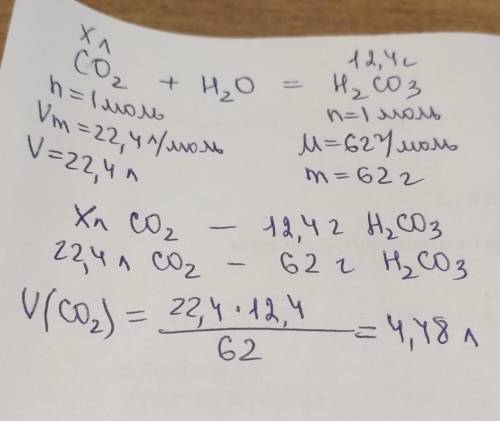 Xл 12,4г
CO₂ + H₂O = H₂CO₃
n=1моль n=1моль
Vm=22,4л/моль M=62г/моль
V=22,4л m=62г
Xл CO₂ – 12,4г H₂CO₃
22,4л CO₂ – 62г H₂CO₃
V(CO₂) = 22,4·12,4 / 62 = 4,48л